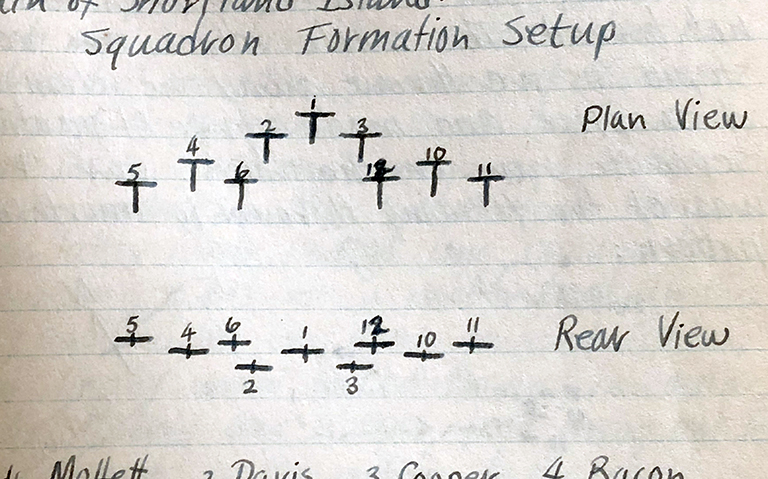 of Shortland Island
Squadron Formation Setup
Plan View
1
2 3
4 10
5 6 12 11
5 4 6 1 12 10 11
Rear View
2 3
1. Mollett 2 Davis 3 Cooper 4 Bacon